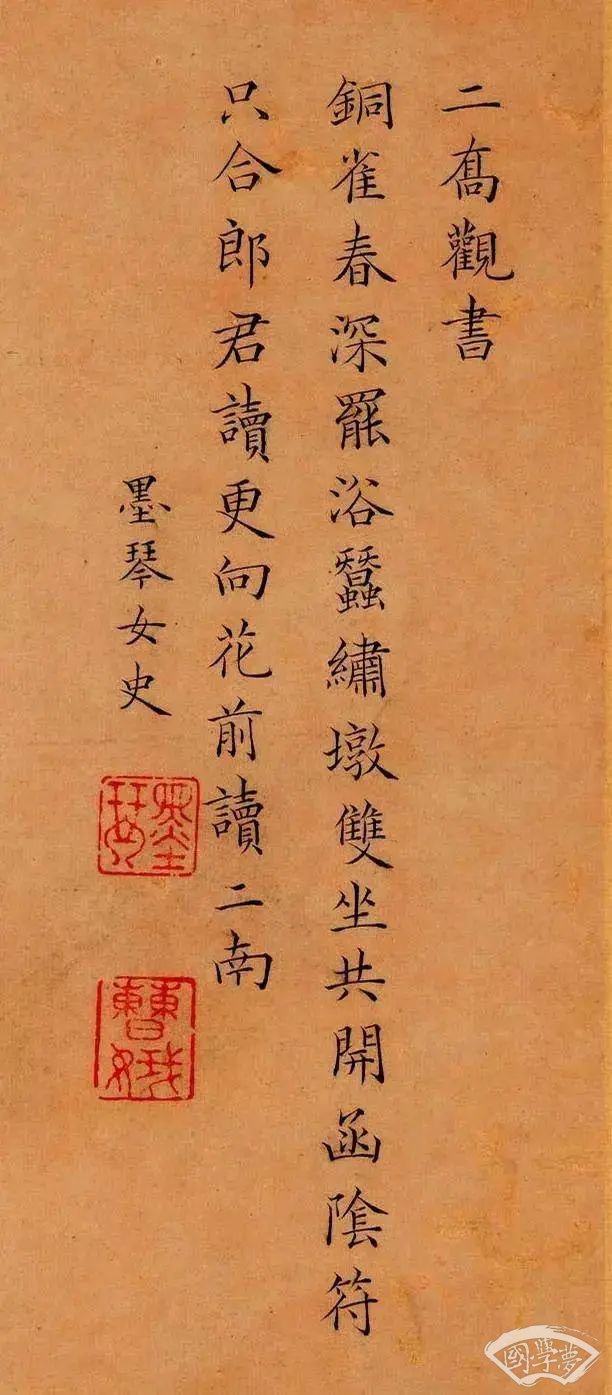 二喬觀書
銅雀春深罷浴蠶繡墩雙坐共開函陰符
只合郎君讀更向花前讀二南
墨琴女史
墨琴
曹娥
國學夢